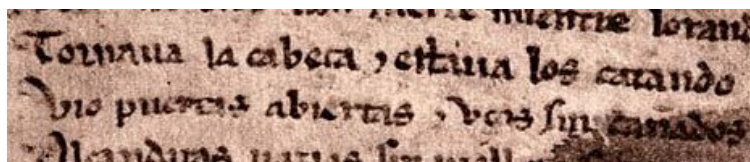 fuerte mientre lorand
Tornaua la cabeça ⁊ estaua los catando
Vio puertas abiertas ⁊ vços sin cañados
Alcandaras uazias sin